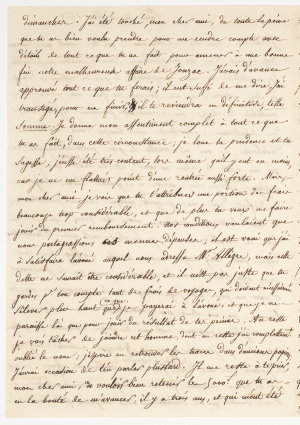 dimancher. J'ai été touché, mon cher ami, de toute la peine
que tu as bien voulu prendre pour me rendre compte avec
détails de tout ce que tu as fait pour amener à une bonne
fin notre malheureuse affaire de Jonzac. J'avais d'avance
approuvé tout ce que tu ferais; il eut suffi de me dire j'ai
transigé, pour en finir, il te reviendra en définitive, telle
somme. Je donne mon assentiment complet à tout ce que
tu as fait, dans cette circonstance; je loue ta prudence et ta
sagesse, j'eusse été très content, lors même qu'il y eut eu moins,
car je ne me flattais point d'une rentrée aussi forte. Mais,
mon cher ami, je vois que tu t'attribues une portion de frais
beaucoup trop considérable, et que de plus tu veux me faire
jouir du premier remboursement. Nos conditions voulaient que
nous partageassions les menues dépenses; il est vrai que j'ai
à satisfaire auquel nous adressa Mr Allègre, mais cette
dette ne saurait être considérable, et il n'est pas juste que tu
gardes pr ton compte tant de frais de voyage, qui doivent
s'élever plus haut que ce que je payerai à l'avoué, et que je ne
paraisse là que pour jouir du résultat de tes peines. Au reste
je vais tâcher de joindre cet homme, dont au reste j'ai complètement
oublié le nom; j'espère en retrouver les traces dans d'anciens papiers,
j'aurai occasion de t'en parler plus tard. Il me reste à te prier
mon cher ami, de vouloir bien retenir les 500f que tu as
eu la bonté de m'avancer, il y a trois ans, et qui m'ont été